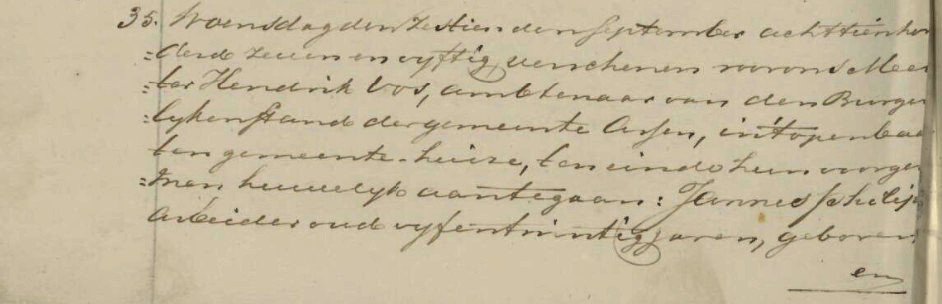 35. Woensdag den zestienden September achttienhon
=derd zeven en vyftig, verschenen voor ons Mees
=ter Hendrik Vos, ambtenaar van den Burger
=lyken stand der gemeente Assen, in 't openbaar
ten gemeente-huize, ten einde hun voorgen
=men huwelyk aantegaan: Jannes Philip
arbeider oud vyfentwintig jaren, geboren
en